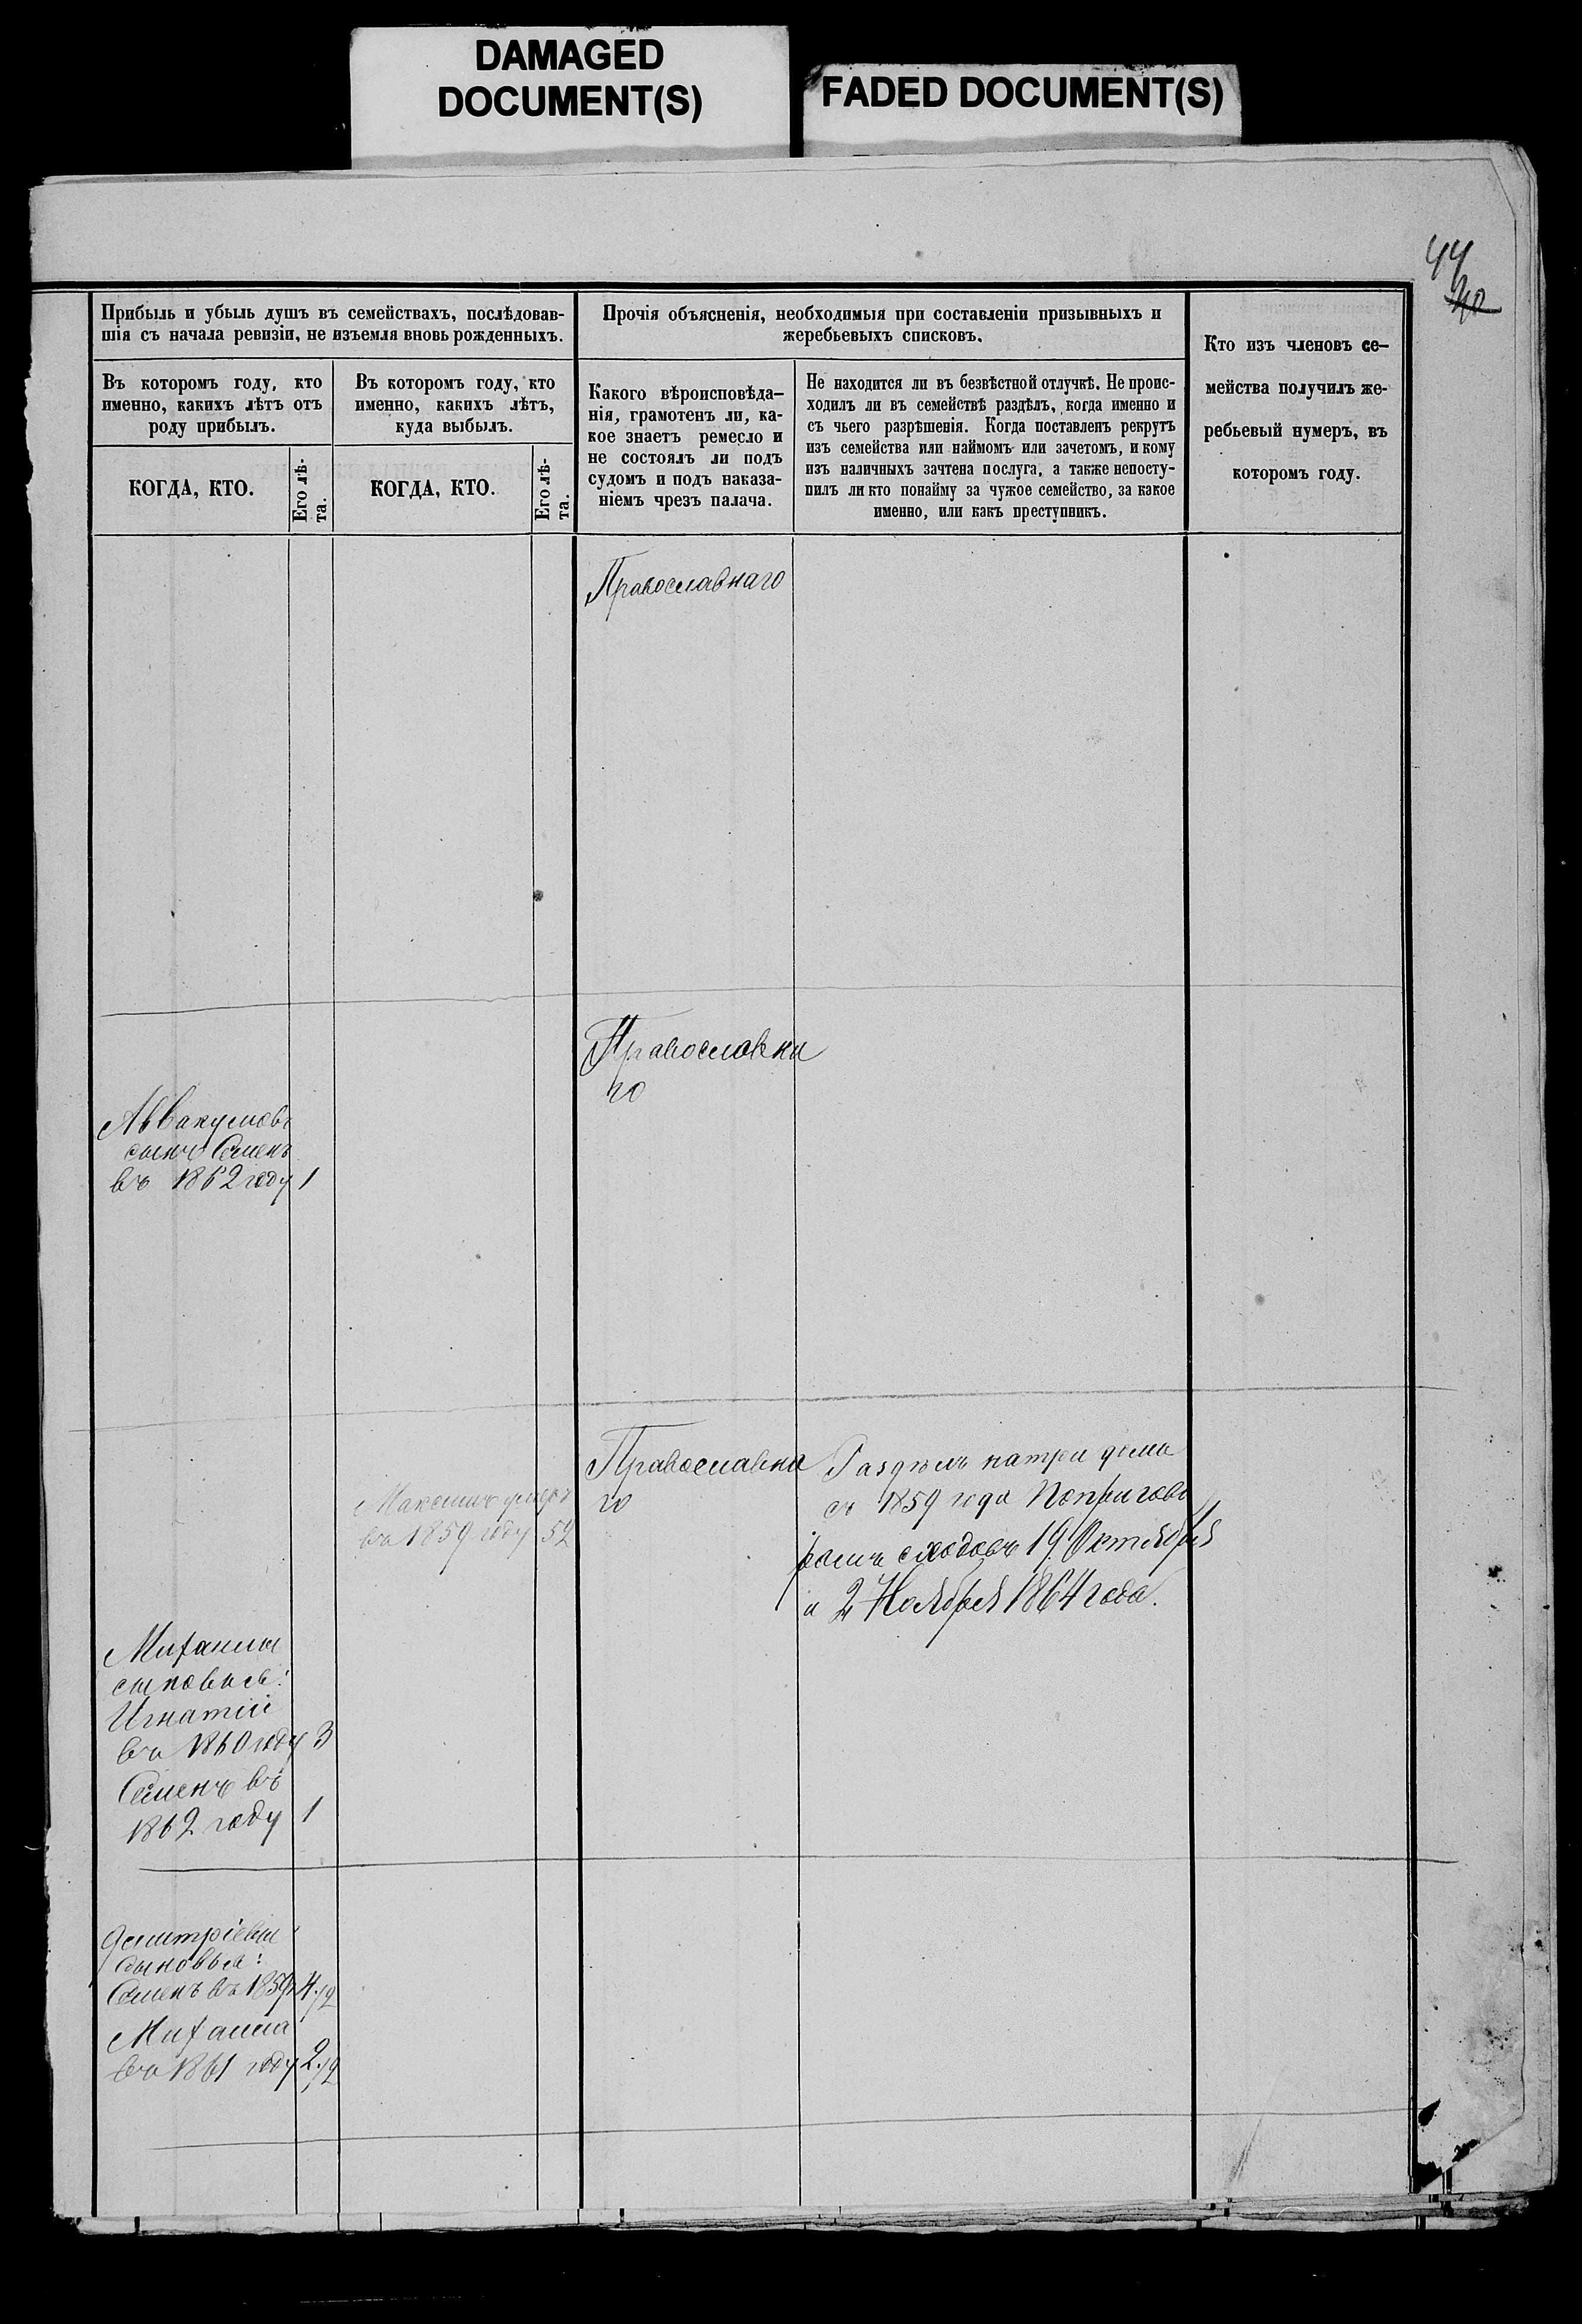 DAMAGED
DOCUMENT(S)
FADED DOCUMENT(S)
44
40
Прибыль и убыль душъ въ семействахъ, послѣдовав-
шія съ начала ревизіи, не изъемля вновь рожденныхъ.
Въ которомъ году, кто
именно, какихъ лѣтъ отъ
роду прибылъ.
КОГДА, КТО.
Его лѣ-
та.
Въ которомъ году, кто
именно, какихъ лѣтъ,
куда выбылъ.
КОГДА, КТО.
Его лѣ-
та.
Прочія объясненія, необходимыя при составленіи призывныхъ и
жеребьевыхъ списковъ.
Какого вѣроисповѣда-
нія, грамотенъ ли, ка-
кое знаетъ ремесло и
не состоялъ ли подъ
судомъ и подъ наказа-
ніемъ чрезъ палача.
Не находится ли въ безвѣстной отлучкѣ. Не проис-
ходилъ ли въ семействѣ раздѣлъ, когда именно и
съ чьего разрѣшенія. Когда поставленъ рекрутъ
изъ семейства или наймомъ или зачетомъ, и кому
изъ наличныхъ зачтена послуга, а также непосту-
пилъ ли кто понайму за чужое семейство, за какое
именно, или какъ преступникъ.
Кто изъ членовъ се-
мейства получилъ же-
ребьевый нумеръ, въ
которомъ году.
Православнаго
Православна
го
Аввакумовъ
сынъ Семенъ
въ 1862 году 1
Православна
го
Максимъ умеръ
въ 1859 году 52
Раздѣлъ натри дома
съ 1859 года Попригово
рамъ сходовъ 19 Октября
и 2 Ноября 1864 года.
Михаилы
сыновья:
Игнатій
въ 1860 году 3
Семенъ въ
1862 году 1
Дмитріевы
сыновья:
Семенъ въ 1859 4 1/2
Михаила
въ 1861 году 2 1/2